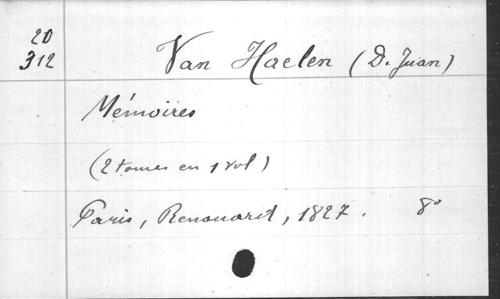 20
312
Van Haelen (D. Juan)
Mémoires
(2 tomes en 1 vol)
Paris, Renouard, 1827. 8°